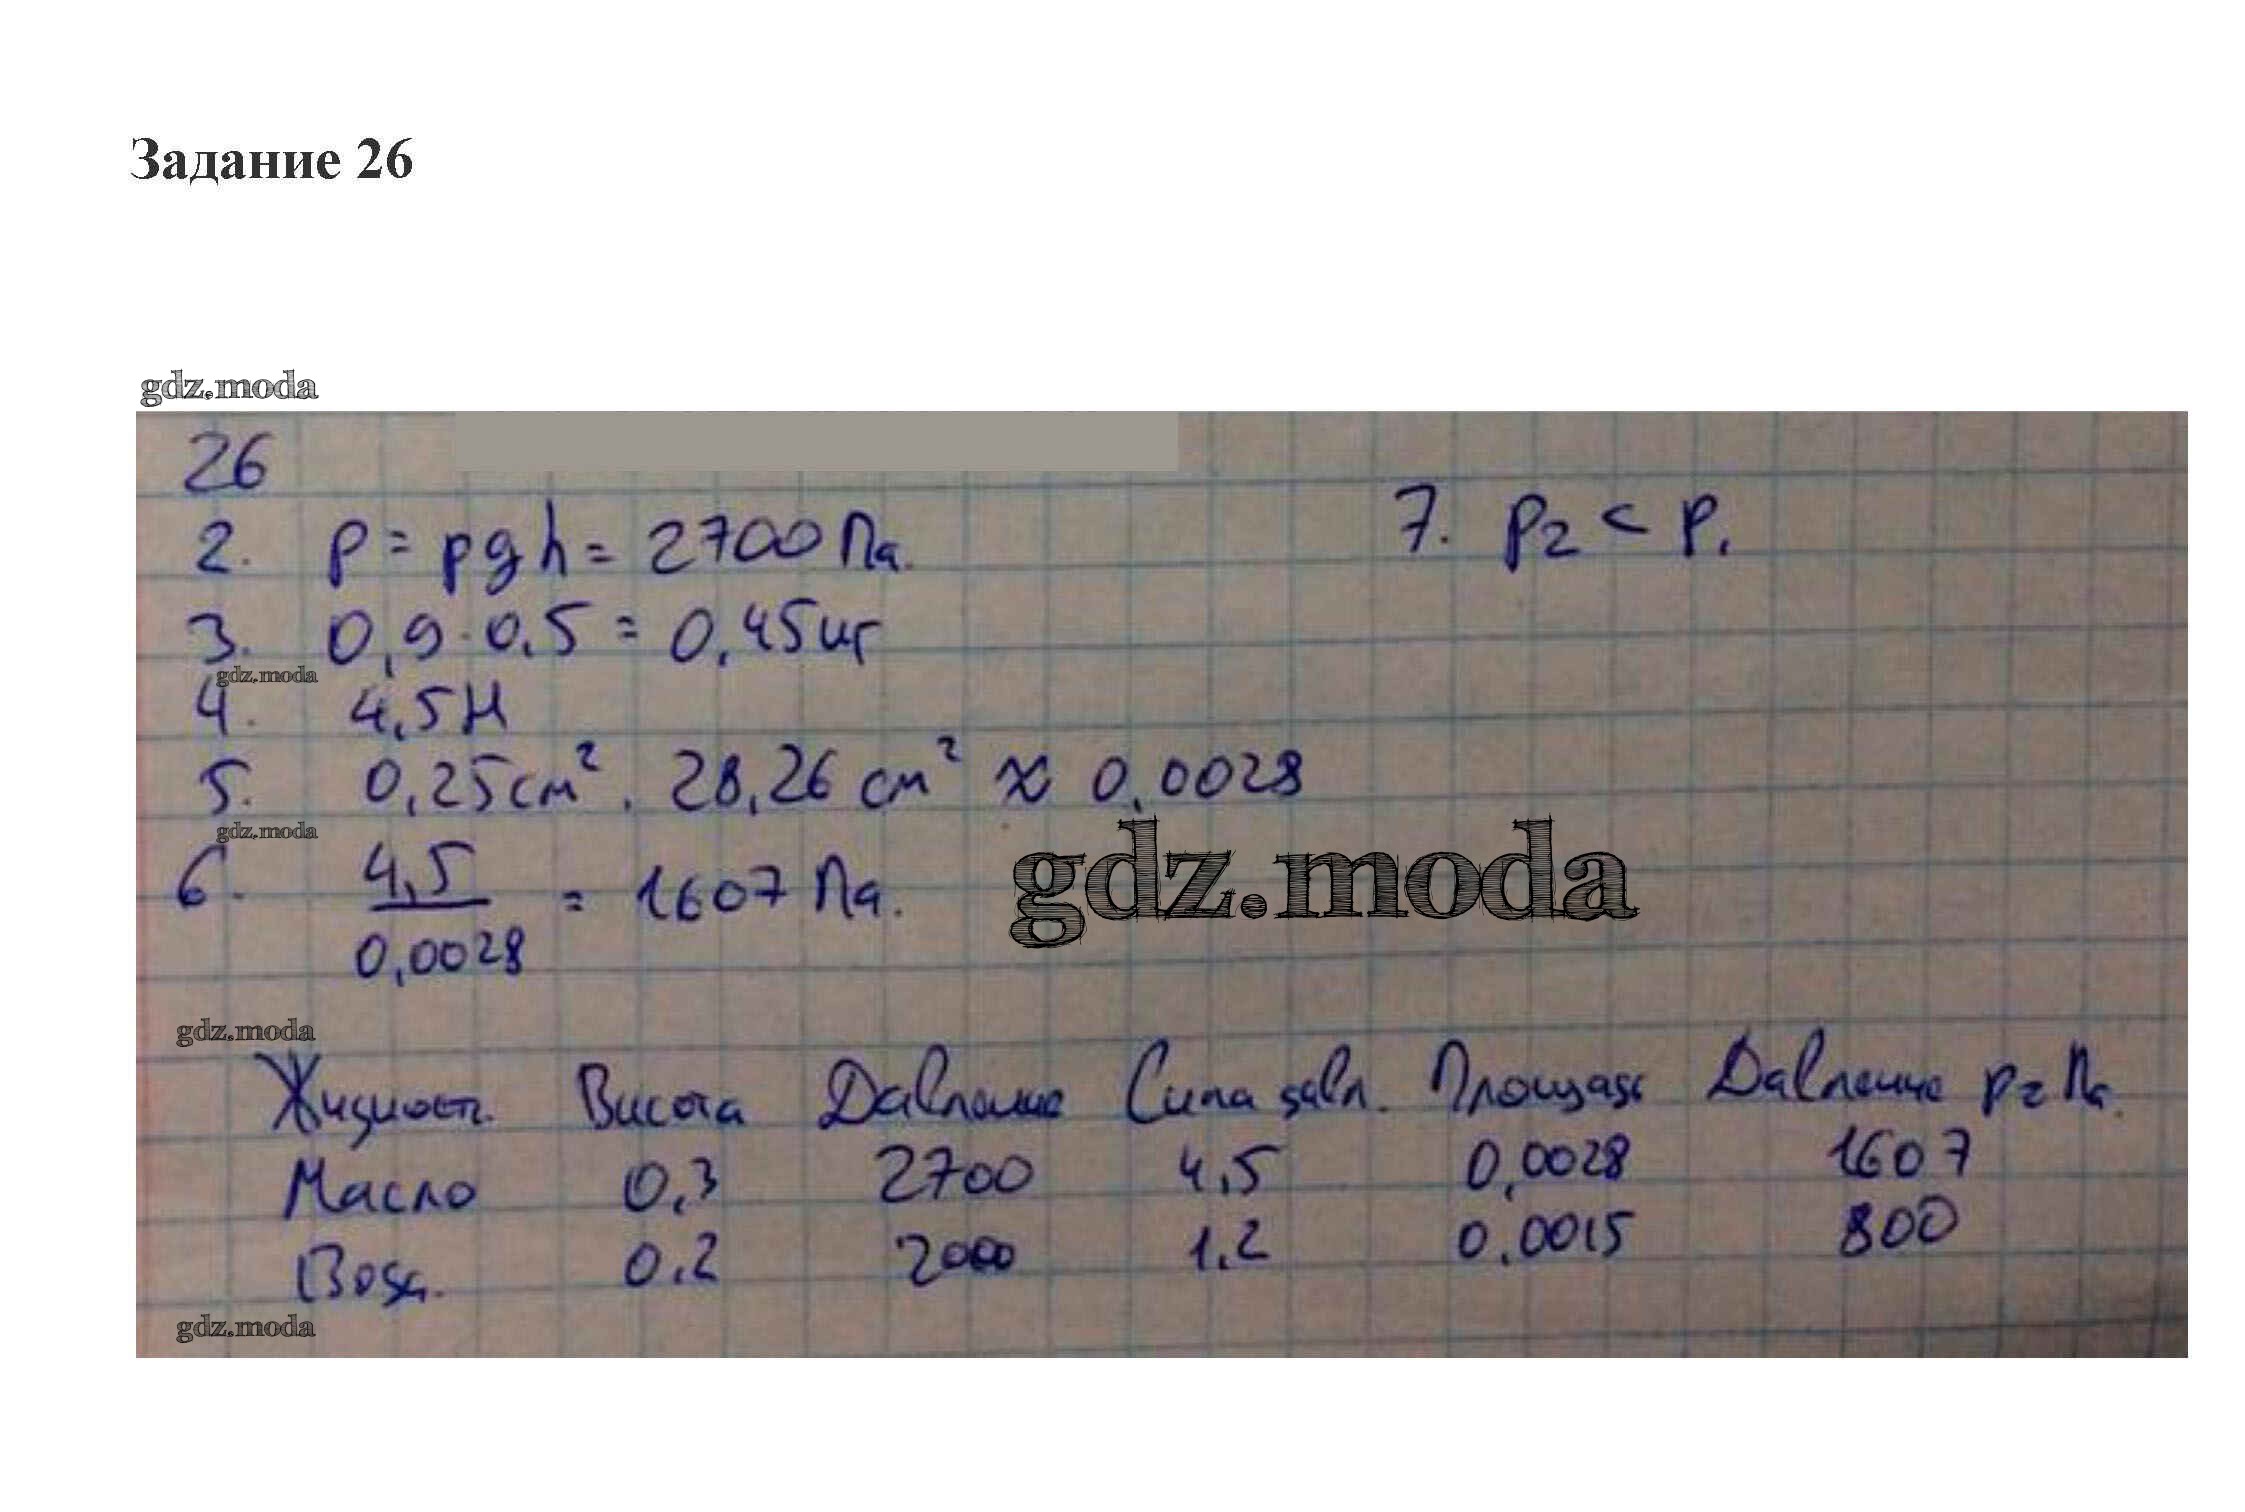 Задание 26
gdz.moda
26
2. p = ρgh = 2700 Па. 7. p2 < p1
3. 0,9 · 0,5 = 0,45 кг
gdz.moda
4. 4,5 Н
5. 0,25 см². 28,26 см² ≈ 0,0028
gdz.moda
gdz.moda
6. 4,5
= 1607 Па.
0,0028
gdz.moda
Жидкост. Висота Давление Сила давл. Площадь Давление p2 Па.
Масло 0,3 2700 4,5 0,0028 1607
Вода. 0,2 2000 1,2 0,0015 800
gdz.moda